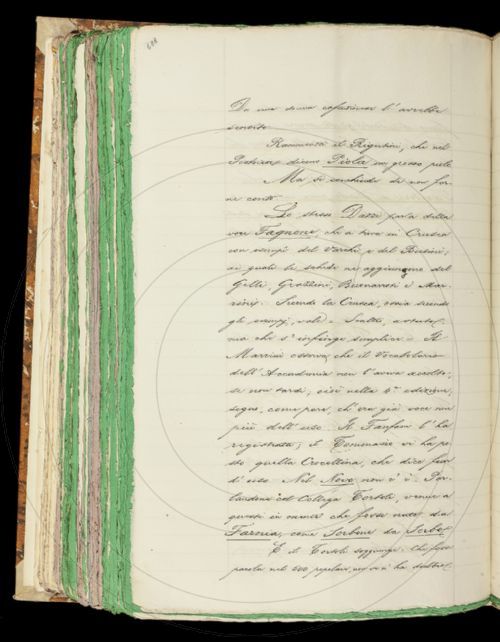 Da una donna confusione l'avrebbe
sentito.
Rammenta il Rigutini, che nel
Pistoiese dicono Piola un grosso pelo
Ma si conchiude di non far
ne conto.
Lo stesso Dazzi parla della
voce Fagnone, che si trova in Crusca
con esempi del Varchi e del Busini,
ai quali le schede ne aggiungono del
Gelli, Grazzini, Buonarroti e Mar
rini. Secondo la Crusca, ossia secondo
gli esempj, vale = Scaltro, astuto,
ma che s'infinge semplice = Il
Marrini osserva, che il Vocabolario
dell'Accademia non l'aveva accolto,
se non tardi, cioè nella 4ª edizione,
segno, come pare, ch'era già voce non
più dell'uso. Il Fanfani l'ha
registrata; il Tommaseo vi ha po
sto quella Crocellina, che dice fuor
d'uso. Nel Novo non v'è. Par
landone col Collega Tortoli, venne a
questi in mente che fosse nata da
Farnia, come Sorbone da Sorbo
E il Tortoli soggiunge: Che fosse
parola nel 500 popolare, non vi ha dubbio,